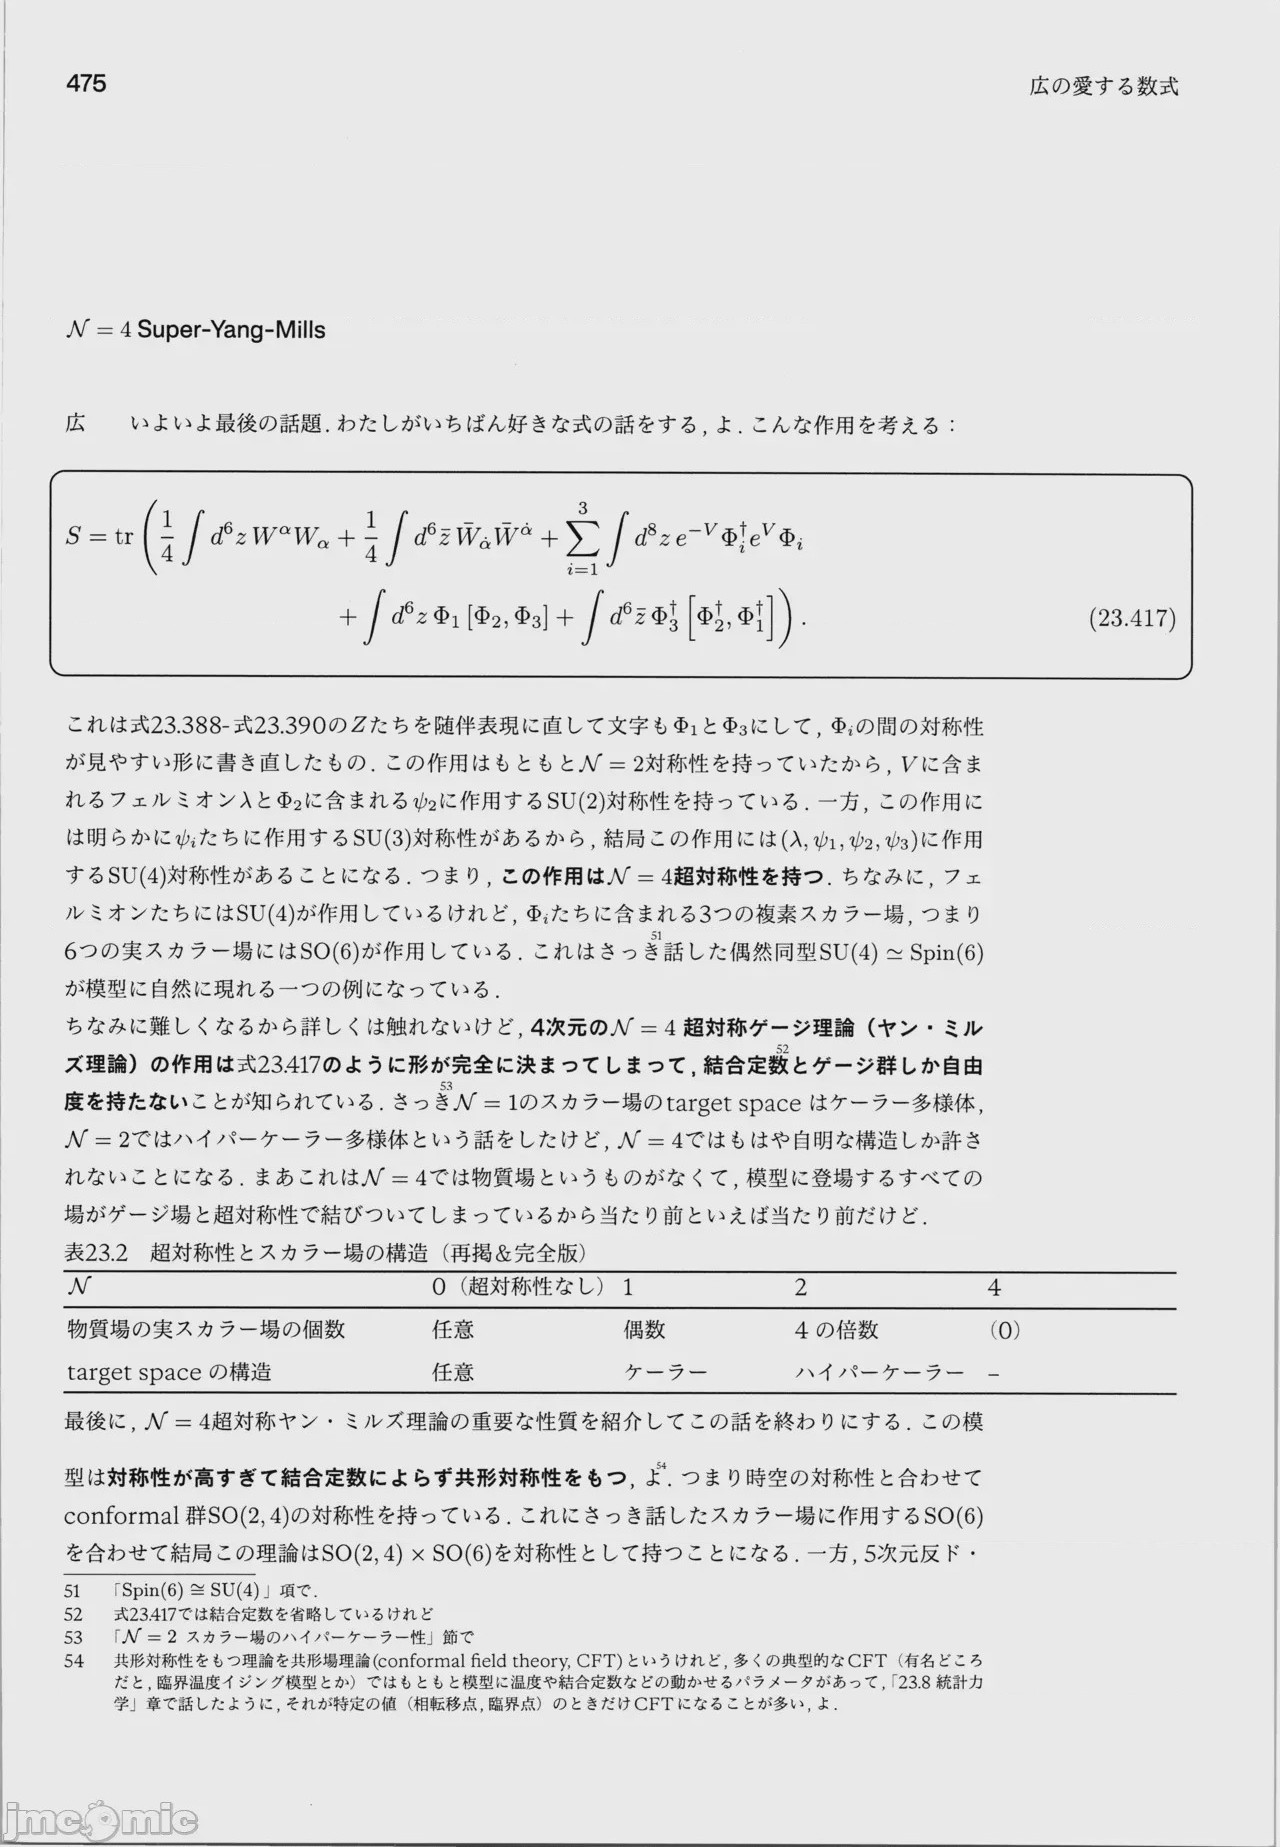 475
広の愛する数式
𝒩 = 4 Super-Yang-Mills
広　いよいよ最後の話題. わたしがいちばん好きな式の話をする, よ. こんな作用を考える：
S = tr ( 1/4 ∫ d⁶z W^α W_α + 1/4 ∫ d⁶z̄ W̄_α̇ W̄^α̇ + ∑_{i=1}^{3} ∫ d⁸z e^{−V} Φ_i^† e^V Φ_i
+ ∫ d⁶z Φ₁ [Φ₂, Φ₃] + ∫ d⁶z̄ Φ₃^† [Φ₂^†, Φ₁^†] ) . (23.417)
これは式23.388-式23.390のZたちを随伴表現に直して文字もΦ₁とΦ₃にして, Φᵢの間の対称性
が見やすい形に書き直したもの. この作用はもともと𝒩 = 2対称性を持っていたから, Vに含ま
れるフェルミオンλとΦ₂に含まれるψ₂に作用するSU(2)対称性を持っている. 一方, この作用に
は明らかにψᵢたちに作用するSU(3)対称性があるから, 結局この作用には(λ, ψ₁, ψ₂, ψ₃)に作用
するSU(4)対称性があることになる. つまり, この作用は𝒩 = 4超対称性を持つ. ちなみに, フェ
ルミオンたちにはSU(4)が作用しているけれど, Φᵢたちに含まれる3つの複素スカラー場, つまり
6つの実スカラー場にはSO(6)が作用している. これはさっき51話した偶然同型SU(4) ≃ Spin(6)
が模型に自然に現れる一つの例になっている.
ちなみに難しくなるから詳しくは触れないけど, 4次元の𝒩 = 4 超対称ゲージ理論（ヤン・ミル
ズ理論）の作用は式23.417のように形が完全に決まってしまって, 結合定数52とゲージ群しか自由
度を持たないことが知られている. さっき53𝒩 = 1のスカラー場のtarget space はケーラー多様体,
𝒩 = 2ではハイパーケーラー多様体という話をしたけど, 𝒩 = 4ではもはや自明な構造しか許さ
れないことになる. まあこれは𝒩 = 4では物質場というものがなくて, 模型に登場するすべての
場がゲージ場と超対称性で結びついてしまっているから当たり前といえば当たり前だけど.
表23.2　超対称性とスカラー場の構造（再掲＆完全版）
𝒩　0（超対称性なし）　1　2　4
物質場の実スカラー場の個数　任意　偶数　4 の倍数　(0)
target space の構造　任意　ケーラー　ハイパーケーラー　–
最後に, 𝒩 = 4超対称ヤン・ミルズ理論の重要な性質を紹介してこの話を終わりにする. この模
型は対称性が高すぎて結合定数によらず共形対称性をもつ, よ54. つまり時空の対称性と合わせて
conformal 群SO(2, 4)の対称性を持っている. これにさっき話したスカラー場に作用するSO(6)
を合わせて結局この理論はSO(2, 4) × SO(6)を対称性として持つことになる. 一方, 5次元反ド・
51　「Spin(6) ≅ SU(4)」項で.
52　式23.417では結合定数を省略しているけれど
53　「𝒩 = 2 スカラー場のハイパーケーラー性」節で
54　共形対称性をもつ理論を共形場理論(conformal field theory, CFT)というけれど, 多くの典型的なCFT（有名どころ
だと, 臨界温度イジング模型とか）ではもともと模型に温度や結合定数などの動かせるパラメータがあって,「23.8 統計力
学」章で話したように, それが特定の値（相転移点, 臨界点）のときだけCFTになることが多い, よ.
jmcomic